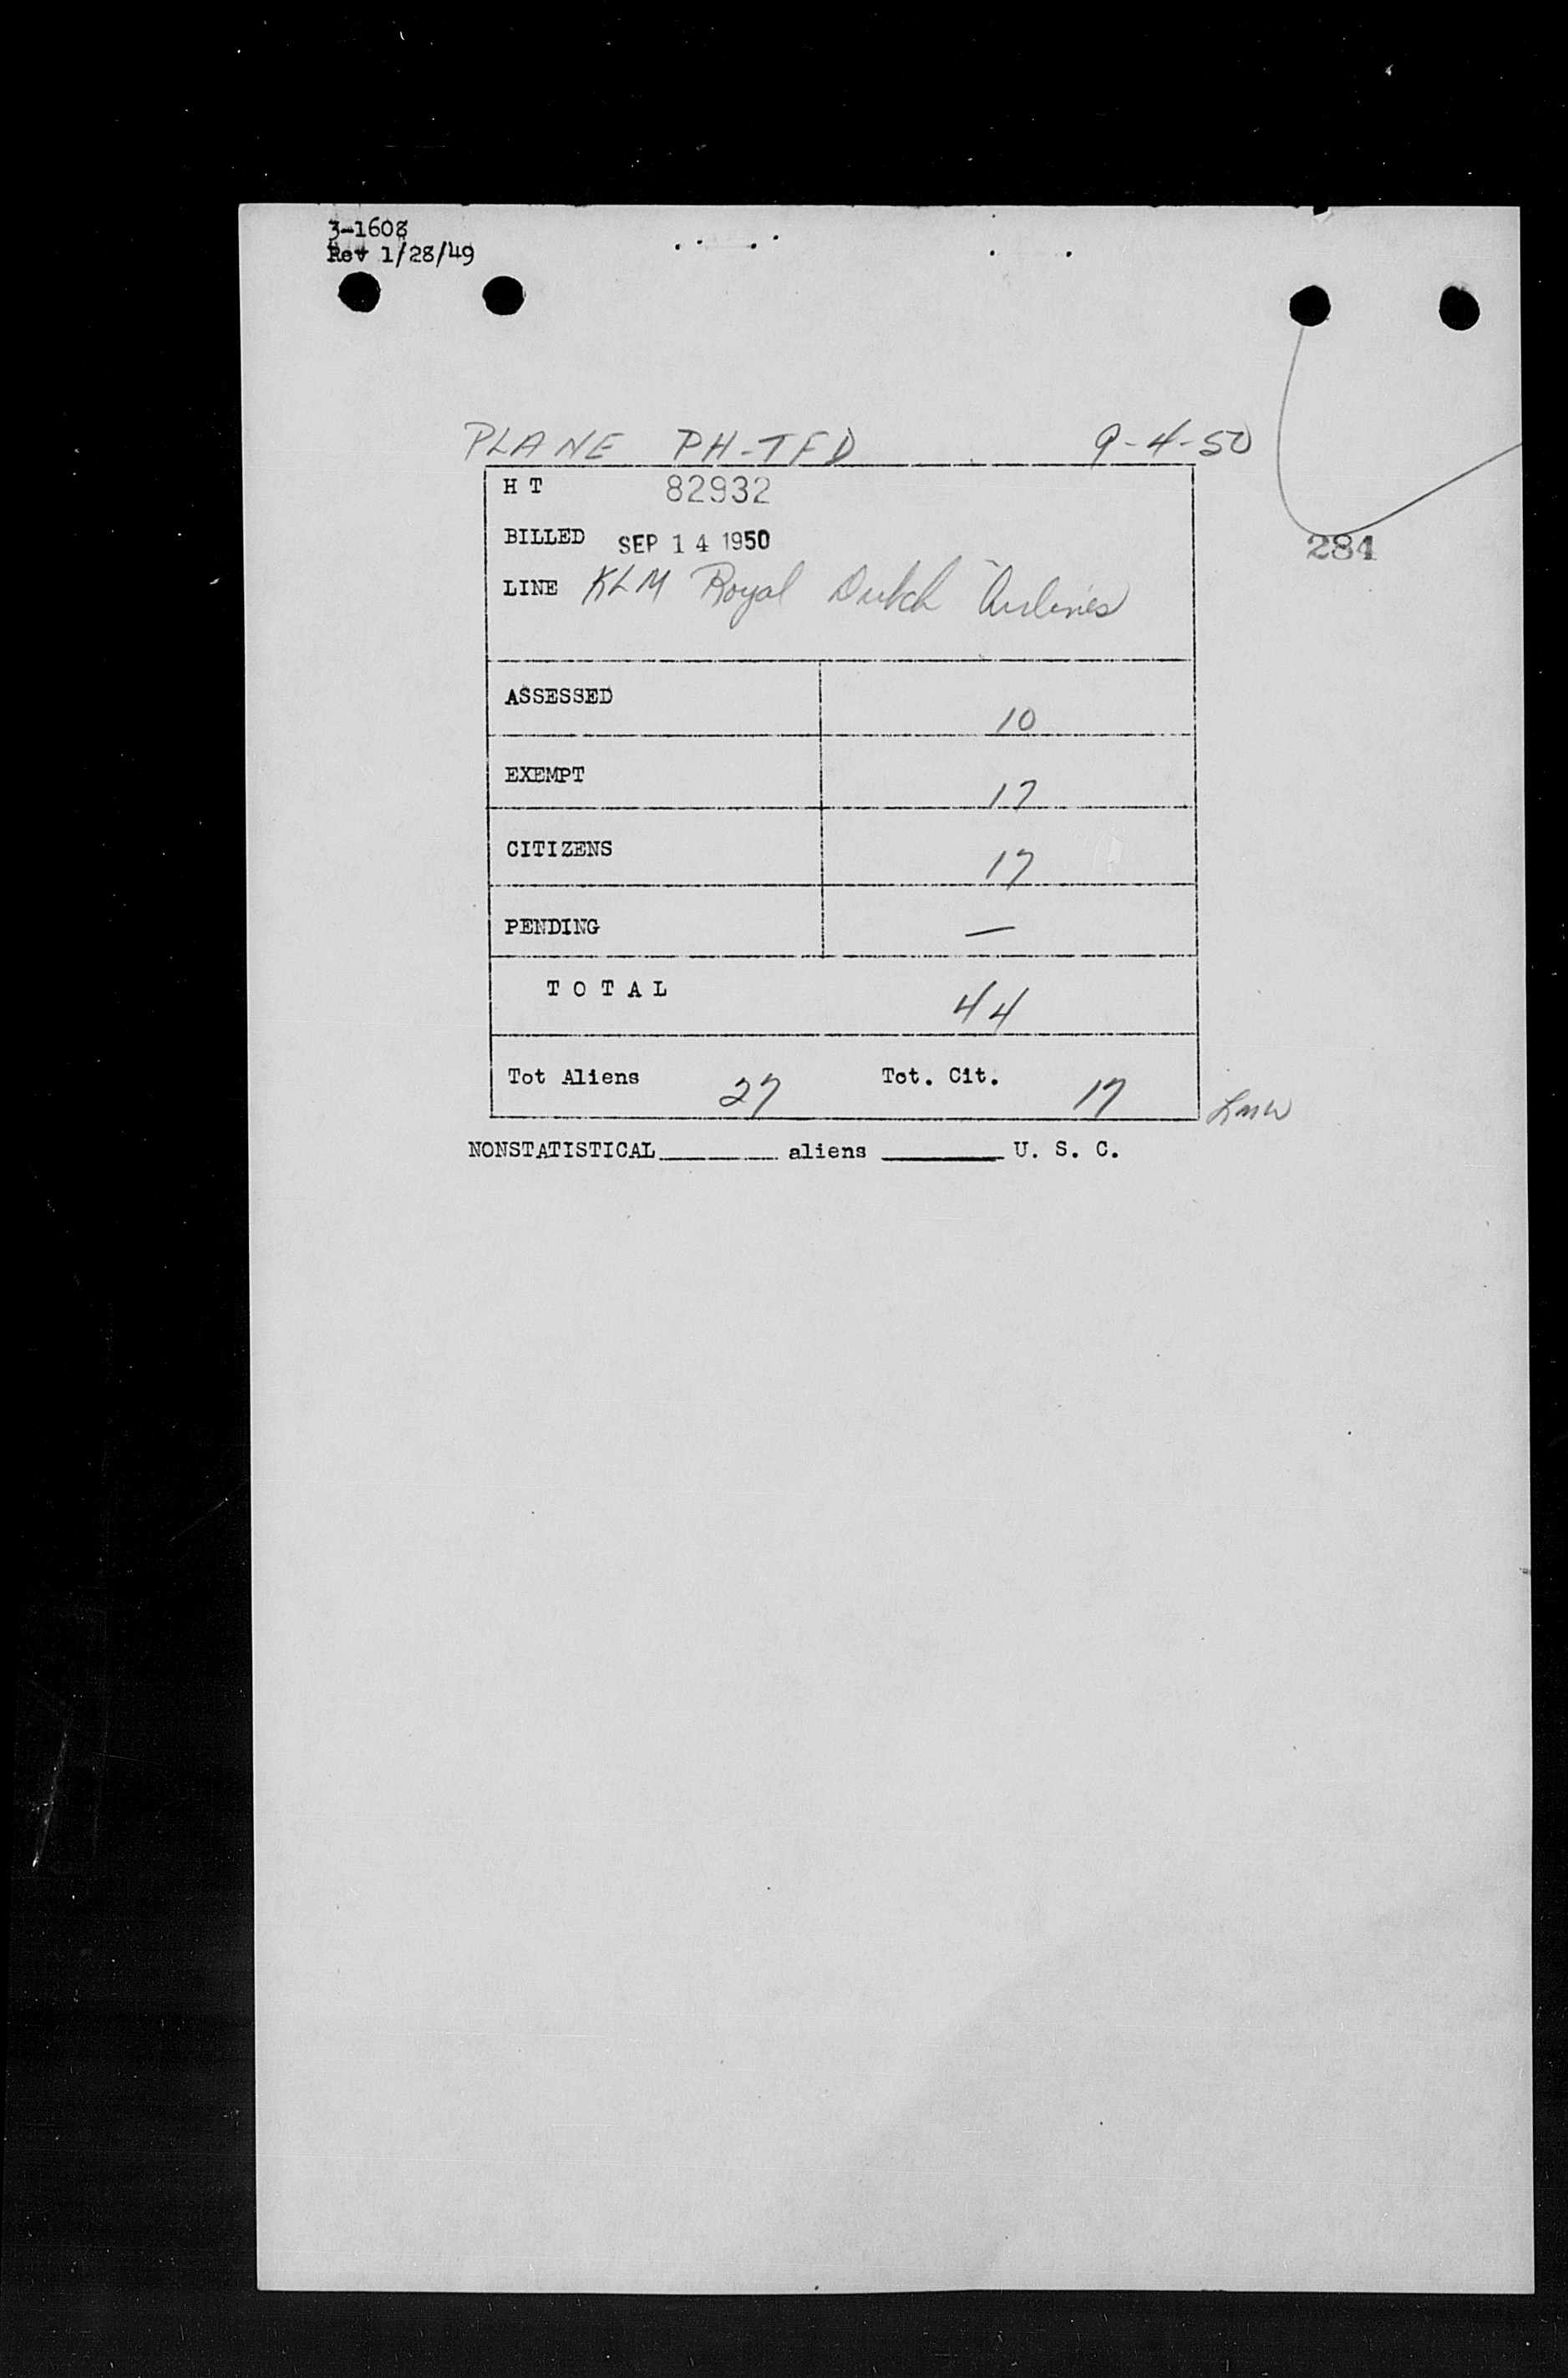 3-1608
Rev 1/28/49
PLANE PH-TFD 9-4-50
H T 82932
BILLED SEP 14 1950
284
LINE KLM Royal Dutch Airlines
ASSESSED 10
EXEMPT 17
CITIZENS 17
PENDING —
T O T A L 44
Tot Aliens 27 Tot. Cit. 17
NONSTATISTICAL______ aliens ______ U. S. C.